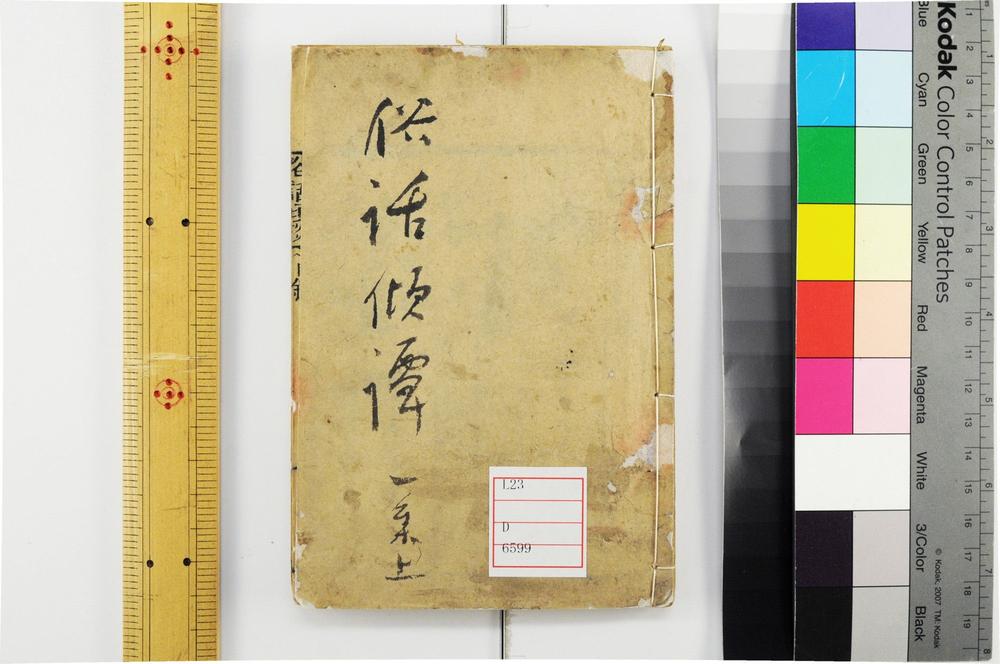 俗話傾譚
一集上
L23
D
6599
Kodak Color Control Patches
Blue
Cyan
Green
Yellow
Red
Magenta
White
3/Color
Black
© Kodak, 2007 TM: Kodak
1
2
3
4
5
6
7
8
9
10
11
12
13
14
15
16
17
18
19
1
2
3
4
5
6
7
8